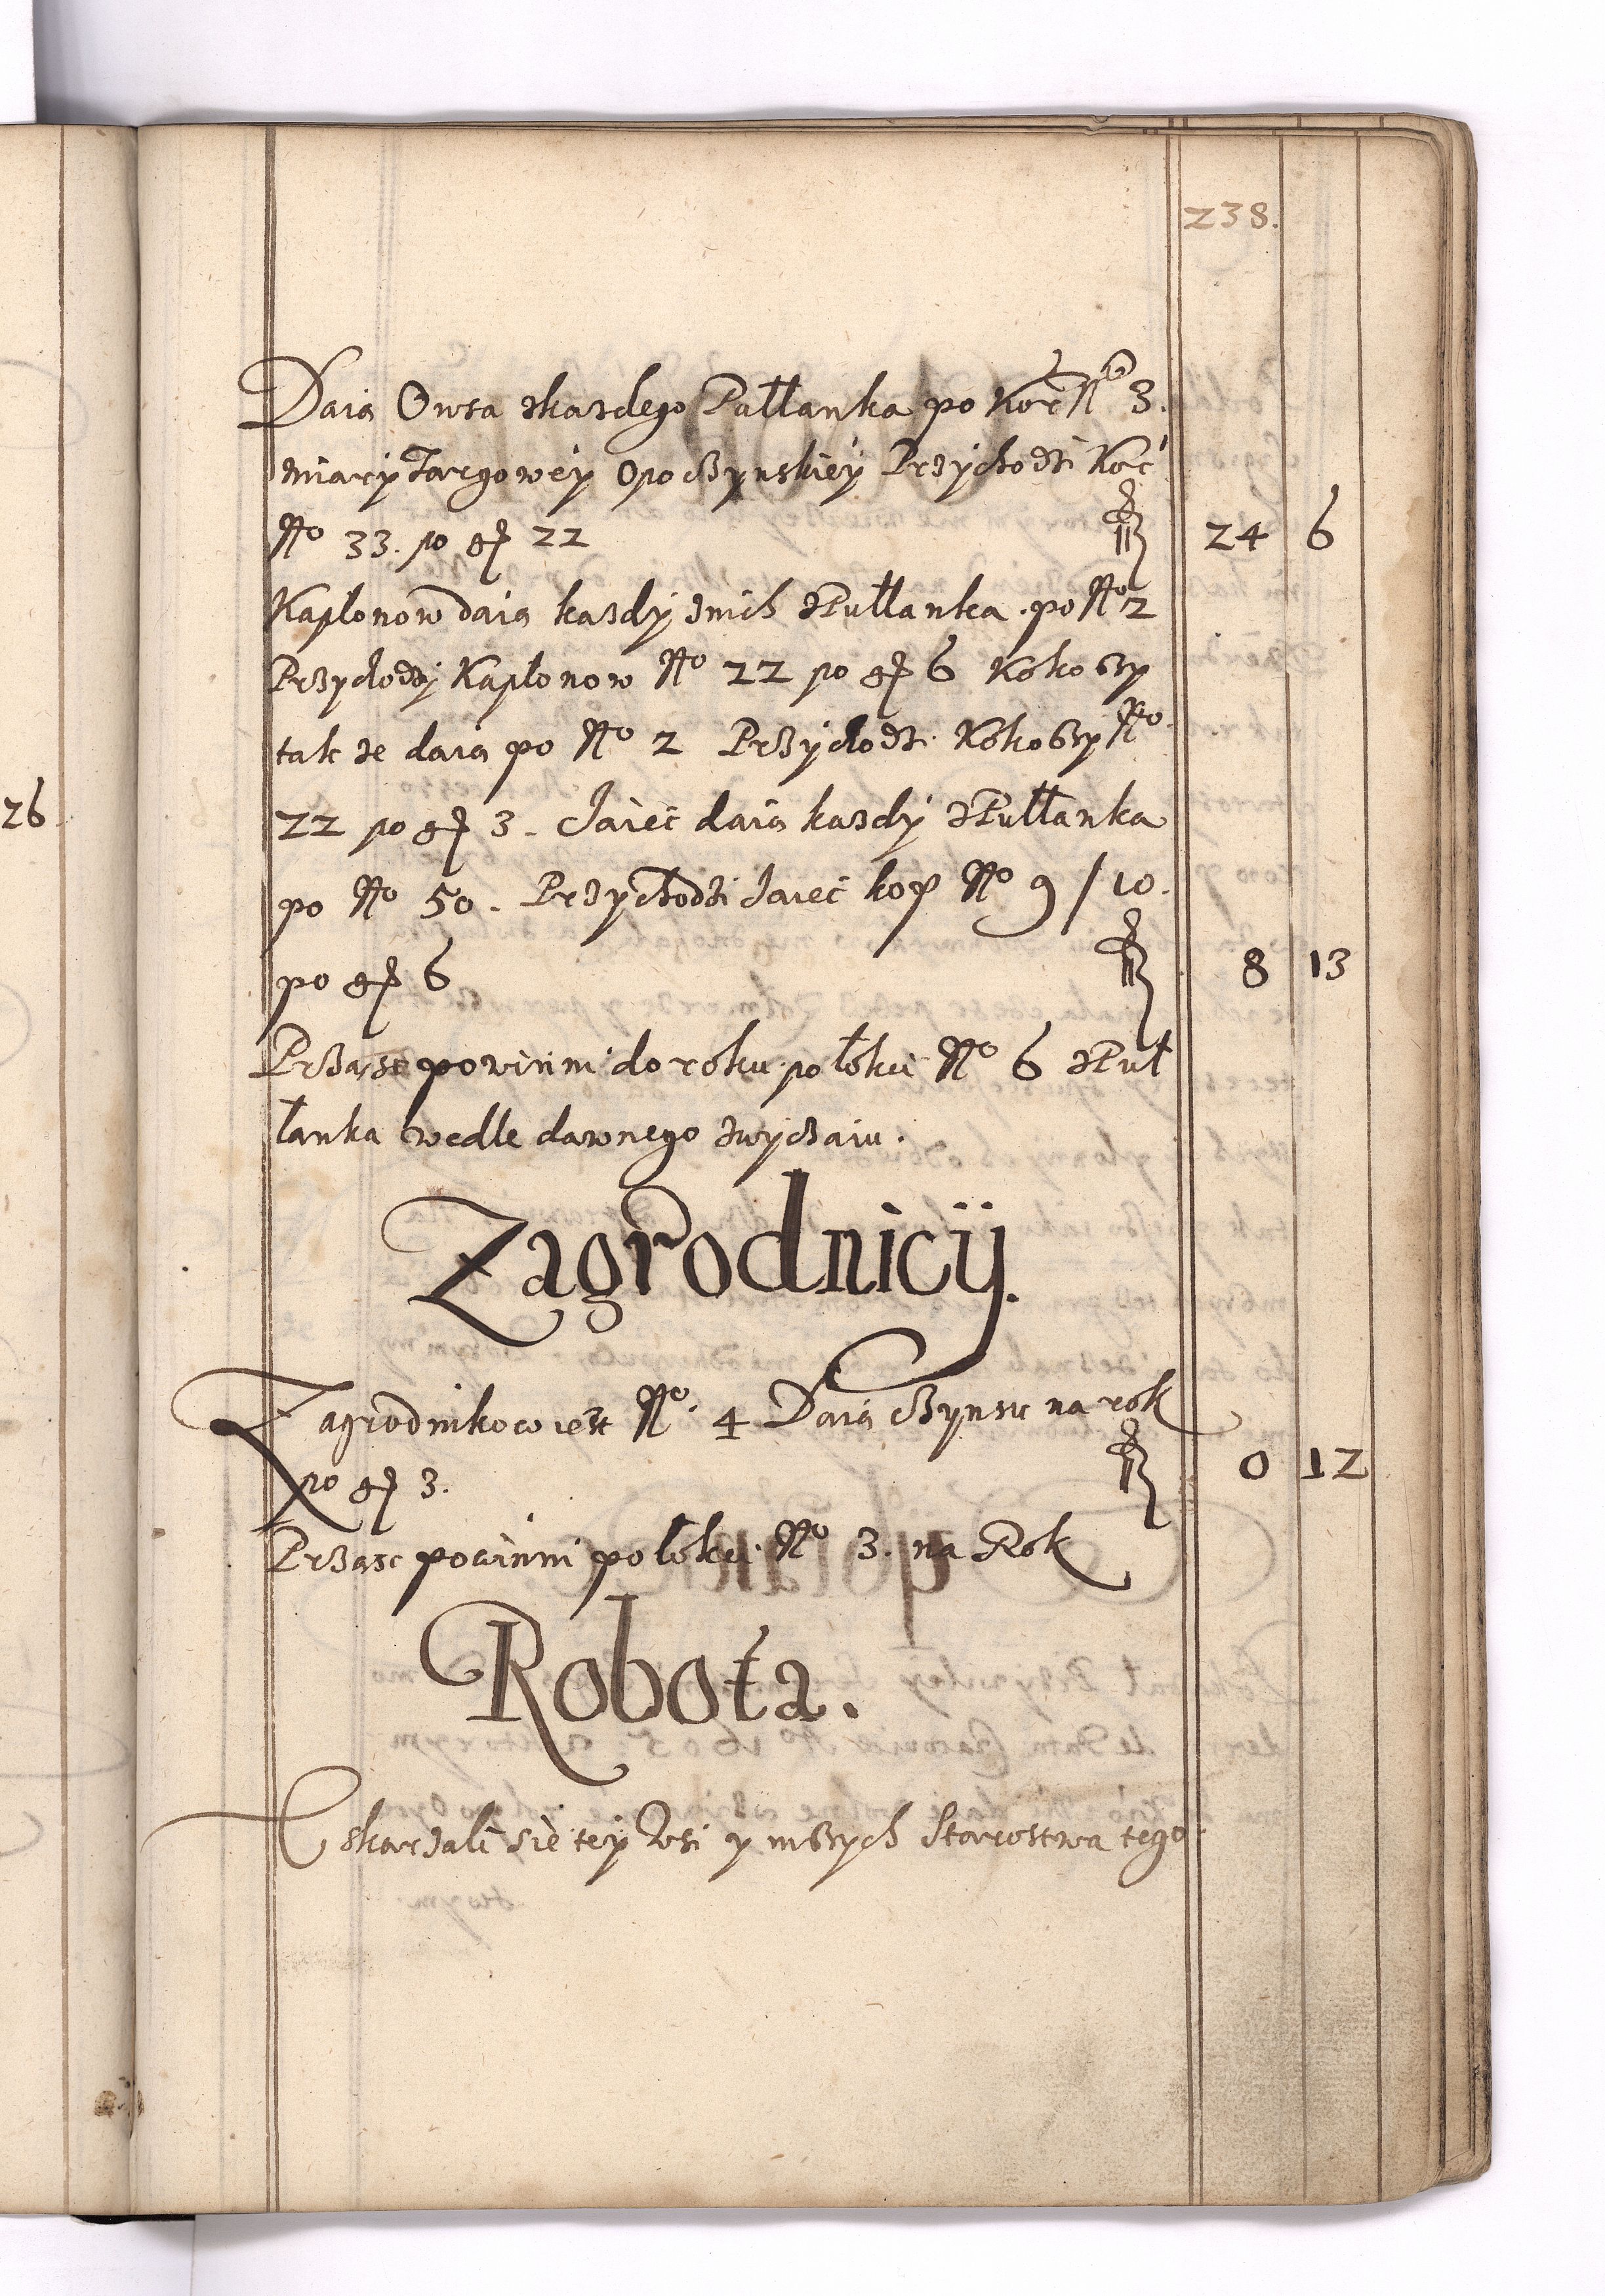 238.
Daią Owsa zkazdego Pułłanka po Korc No 3.
miary Targowey Opoczynskiey Przychodzi Korc
No 33. po gr 22 fl 24 6
Kapłonow daią kazdy znich zPułłanka po No 2
Przychodzi Kapłonow No 22 po gr 6 Kokoszy
tak ze daią po No 2 Przychodzi Kokoszy No
22 po gr 3. Jaiec daią kazdy zPułłanka
po No 50. Przychodzi Jaiec kop No 9 / 10.
po gr 6 fl 8 13
Prząsc powinni do roku po łokci No 6 zPuł
łanka wedle dawnego zwyczaiu.
Zagrodnicy.
Zagrodnikow iest No. 4 Daią Czynszu na rok
po gr 3. fl 0 12
Prząsc powinni po łokci No 3. na Rok
Robota.
Uskarzali się tey Wsi y inszych Starostwa tego
26.